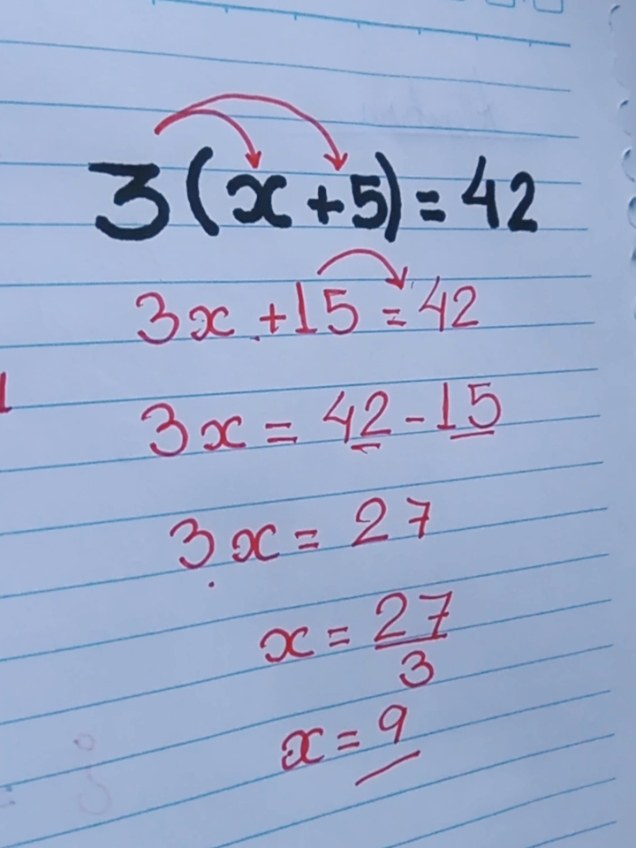 3(x+5)=42
3x+15=42
3x=42-15
3x=27
x=27/3
x=9